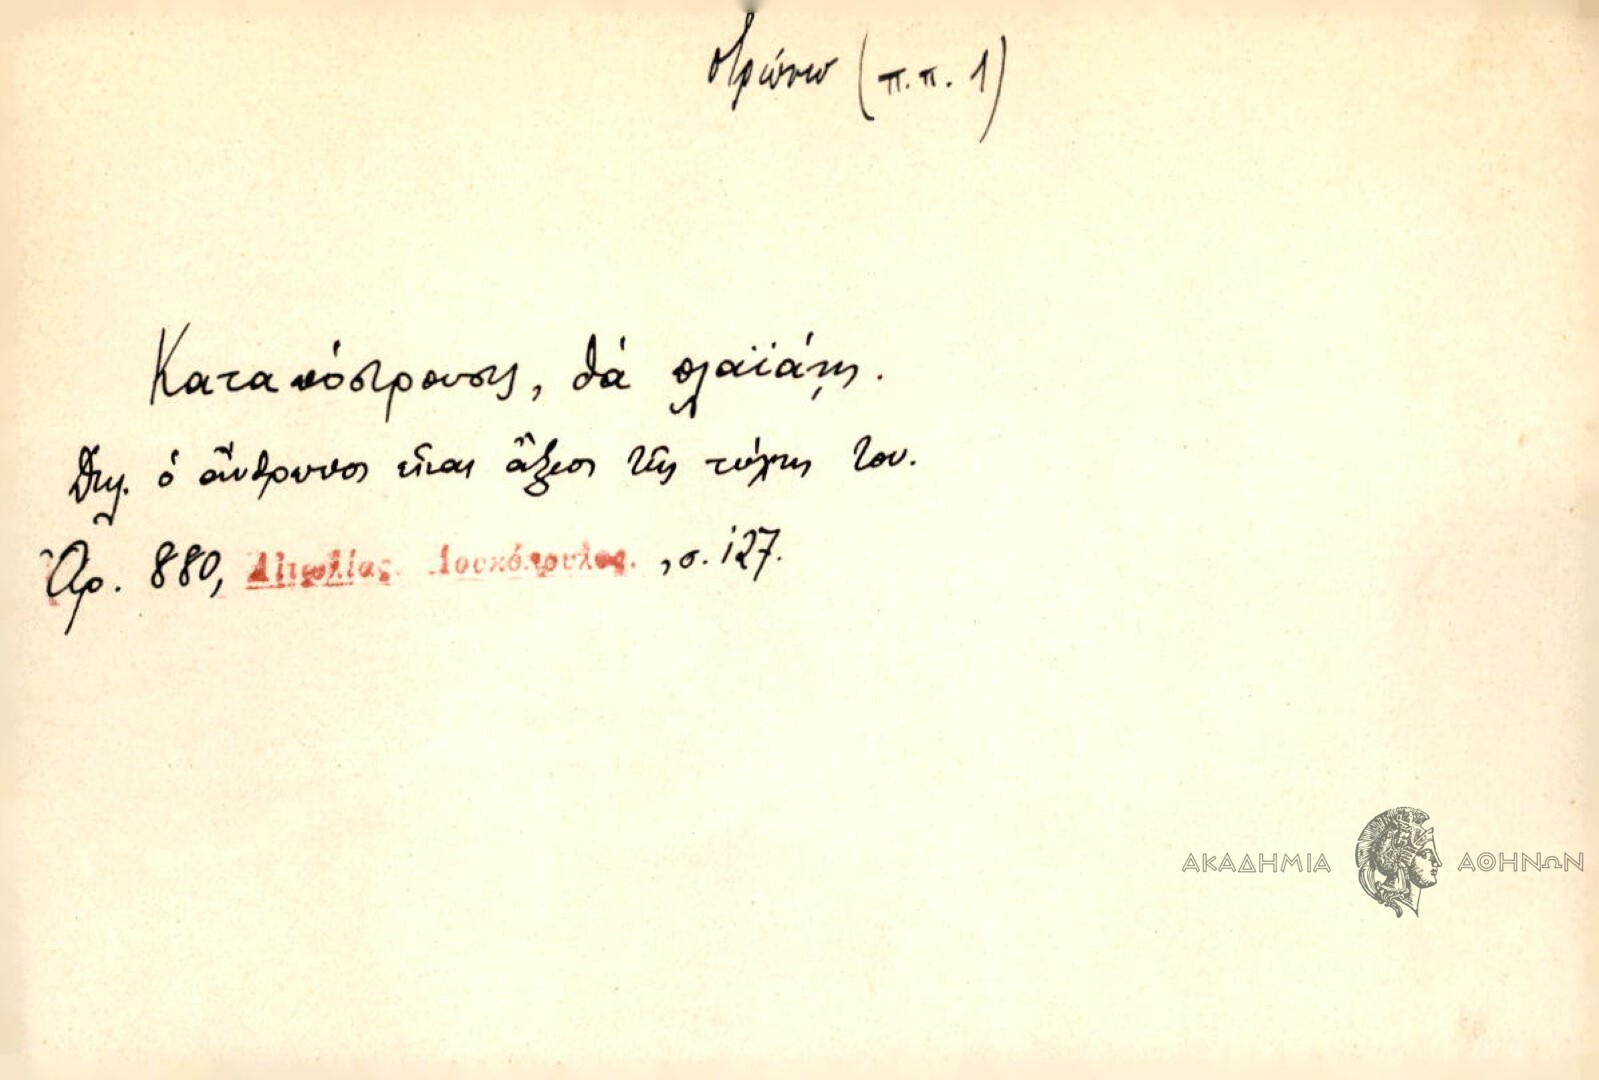 στρώνω (π.π. 1)
Καταπόστρουσις, θά πλαϊάσῃς.
Δηλ. ὁ ἄνθρωπος εἶναι ἄξιος τῆς τύχης του.
Ἀρ. 880, Αἰτωλίας Λουκόπουλος. , σ. 127.
ΑΚΑΔΗΜΙΑ ΑΘΗΝΩΝ